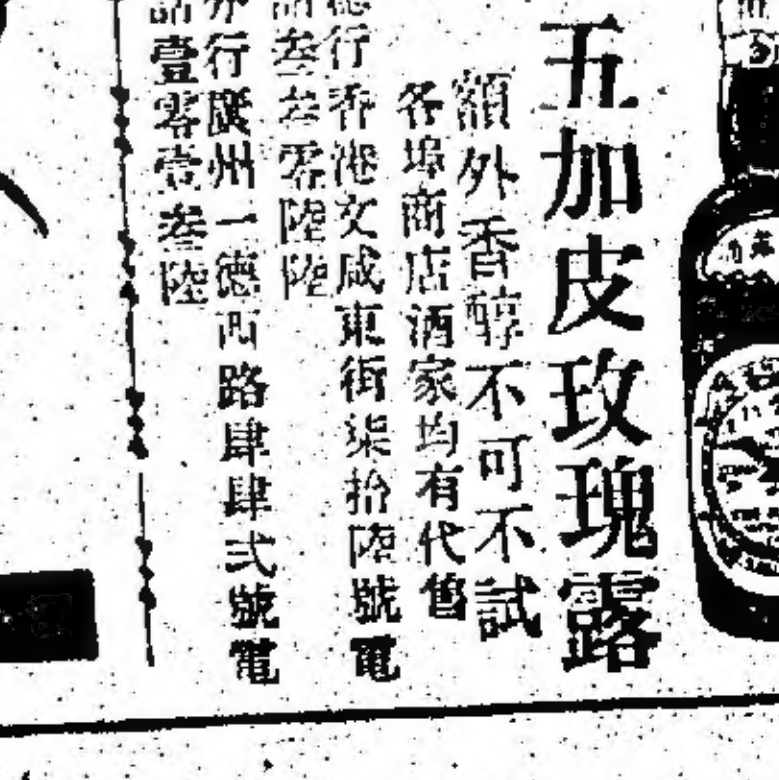 五加皮玫瑰露
額外香醇不可不試
各埠商店酒家均有代售
行香港文咸東街柒拾陸號電
話叁叁零陸陸
行廣州一德西路肆肆弍號電
話壹零壹叁陸